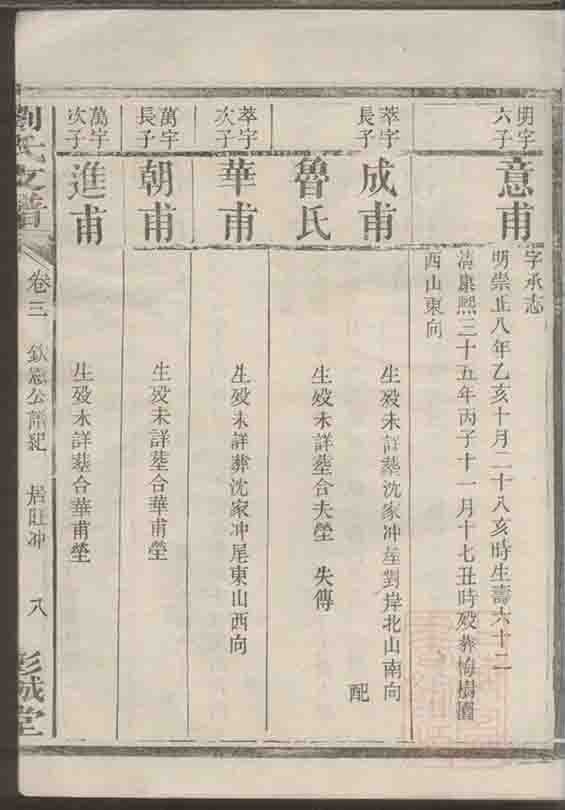 明字
六子
意甫
字承志
明崇正八年乙亥十月二十八亥時生壽六十二
清康熙三十五年丙子十一月十七丑時歿葬梅樹園
西山東向
萃字
長子
成甫
生歿未詳葬沈家冲屋對岸北山南向
配
魯氏
生歿未詳葬合夫塋 失傳
萃字
次子
華甫
生歿未詳葬沈家冲尾東山西向
萬字
長子
朝甫
生歿未詳葬合華甫塋
萬字
次子
進甫
生歿未詳葬合華甫塋
劉氏支譜
卷三
公譜紀
居旺冲
八
彭城堂